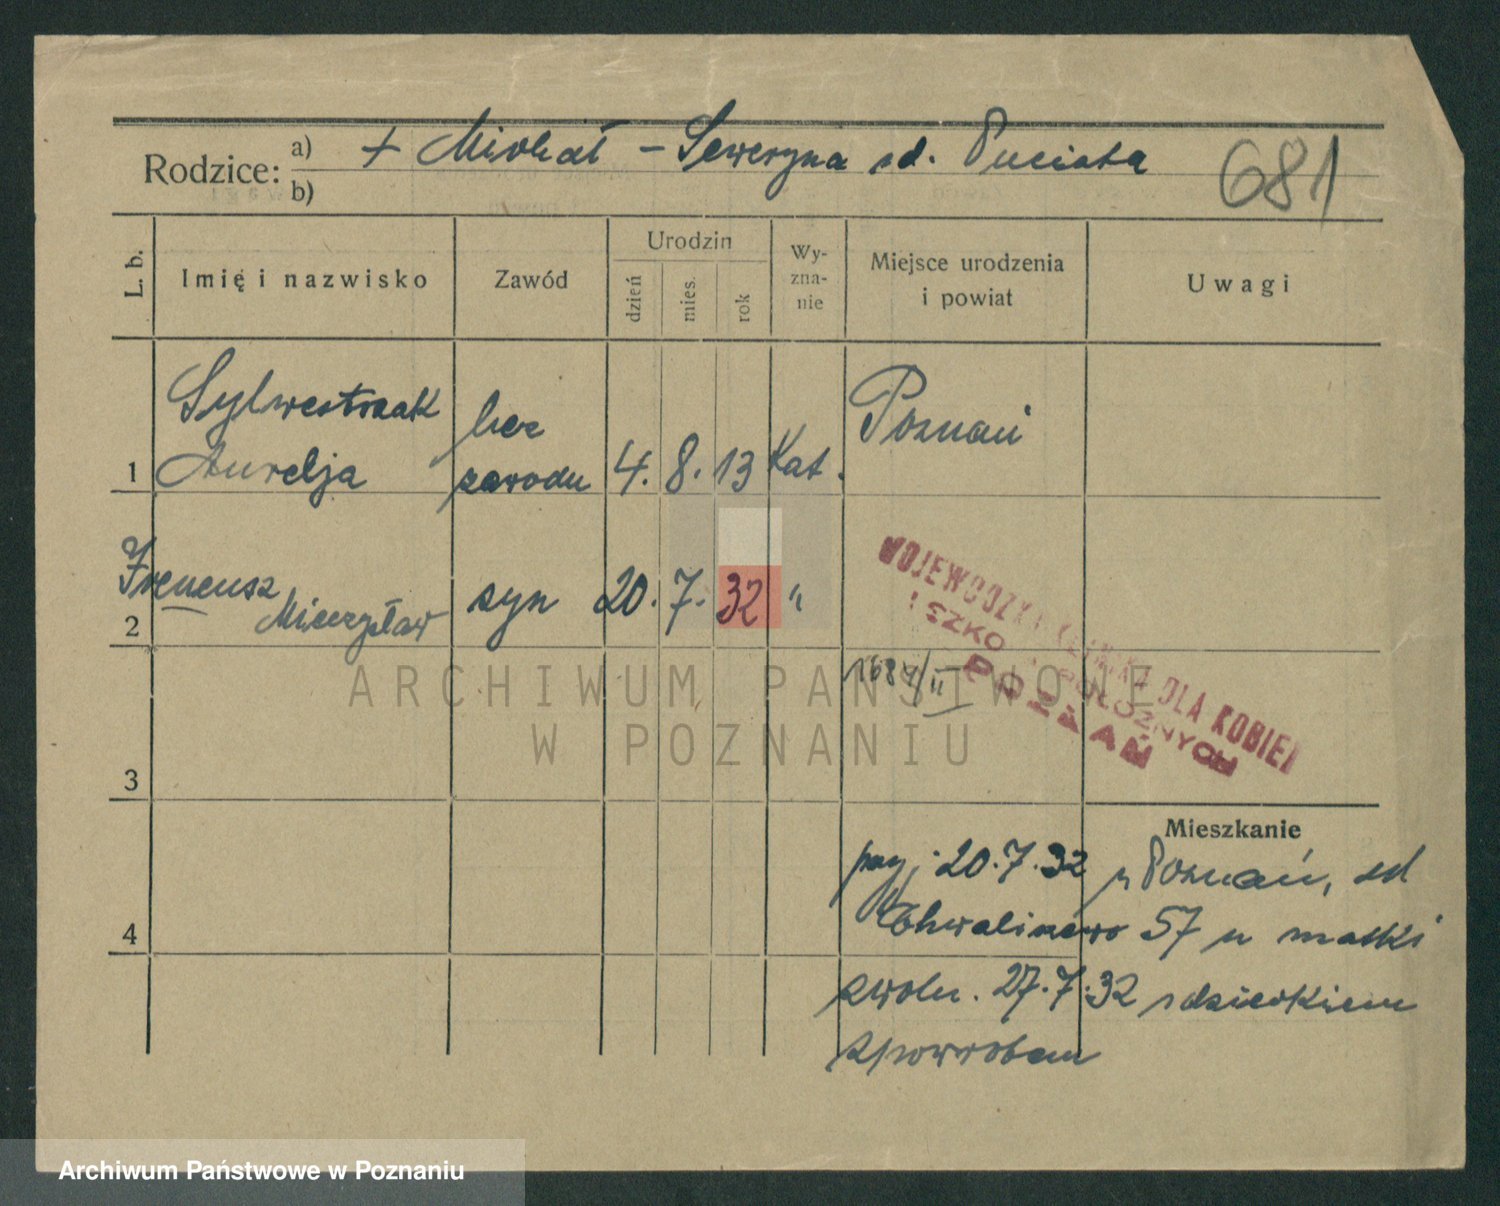 Rodzice: a) + Michał – Seweryna zd. Puciata
b)
681
L. b.
Imię i nazwisko
Zawód
Urodzin
dzień
mies.
rok
Wy-
zna-
nie
Miejsce urodzenia
i powiat
Uwagi
Sylwestrzak bez Poznań
1 Aurelja zawodu 4. 8. 13 Kat.
Ireneusz
2 Mieczysław syn 20. 7. 32 "
WOJEWÓDZKA KLINIKA DLA KOBIET
I SZKOŁA POŁOŻNYCH
POZNAŃ
1684/II
ARCHIWUM PAŃSTWOWE
W POZNANIU
3
Mieszkanie
przyj. 20.7.32 z Poznań, od
Chwaliszewo 57 u matki
4
zwoln. 27.7.32 z dzieckiem
z powrotem
Archiwum Państwowe w Poznaniu